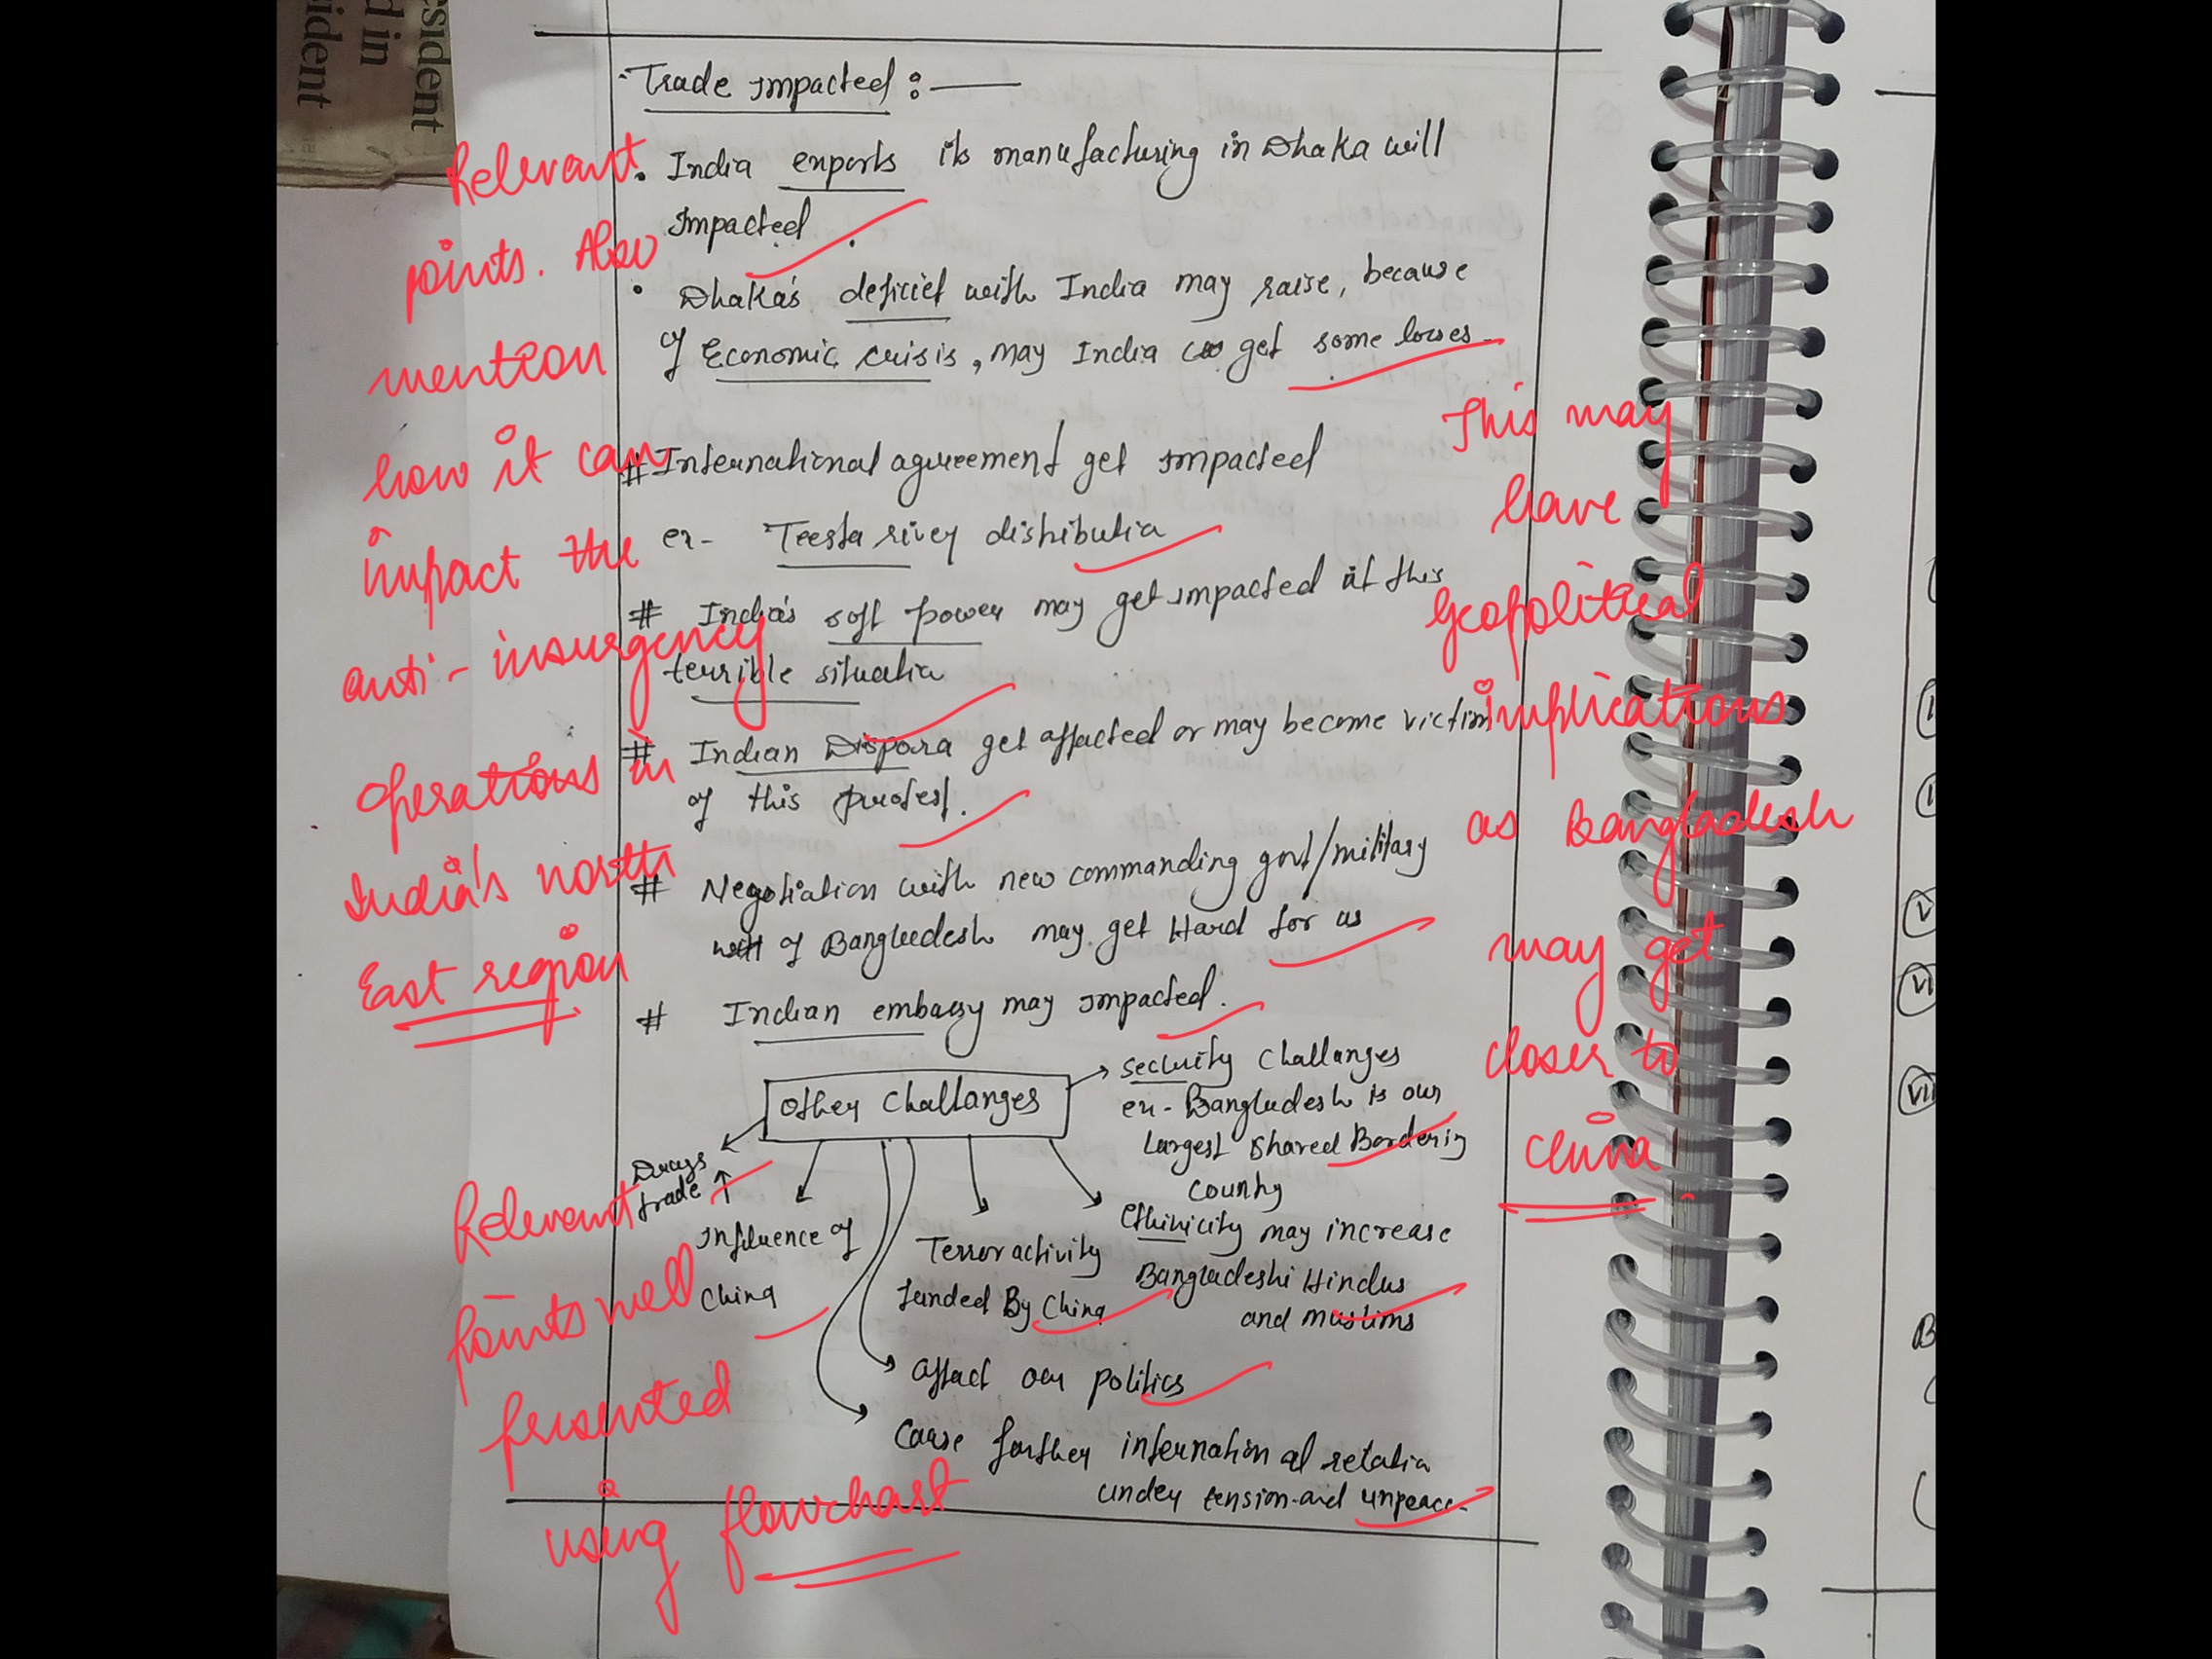 esident
d in
sident
Trade Impacted :—
• India exports its manufacturing in Dhaka will
Impacted.
• Dhaka's deficiet with India may raise, because
of Economic crisis, may India get some losses
# International agreement get impacted
ex- Teesta river distributia
# India's soft power may get impacted at this
terrible situatia
# Indian Dispora get affacted or may become victim
of this protest.
# Negotiation with new commanding govt/military
of Bangladesh may get Hard for us
# Indian embassy may impacted.
Other Challanges
Security Challanges
ex- Bangladesh is our
Largest shared Bordering
Country
Drugs
trade ↑
Influence of
China
Terror activity
funded By China
Ethinicity may increase
Bangladeshi Hindus
and muslims
affact our politics
Cause further international relatia
under tension and unpeace
Relevant
points. Also
mention
how it can
impact the
anti-insurgency
operations in
India's north
East region
This may
have
geopolitical
implications
as Bangladesh
may get
closer to
China
Relevant
points well
presented
using flowchart
V
VI
VII
B